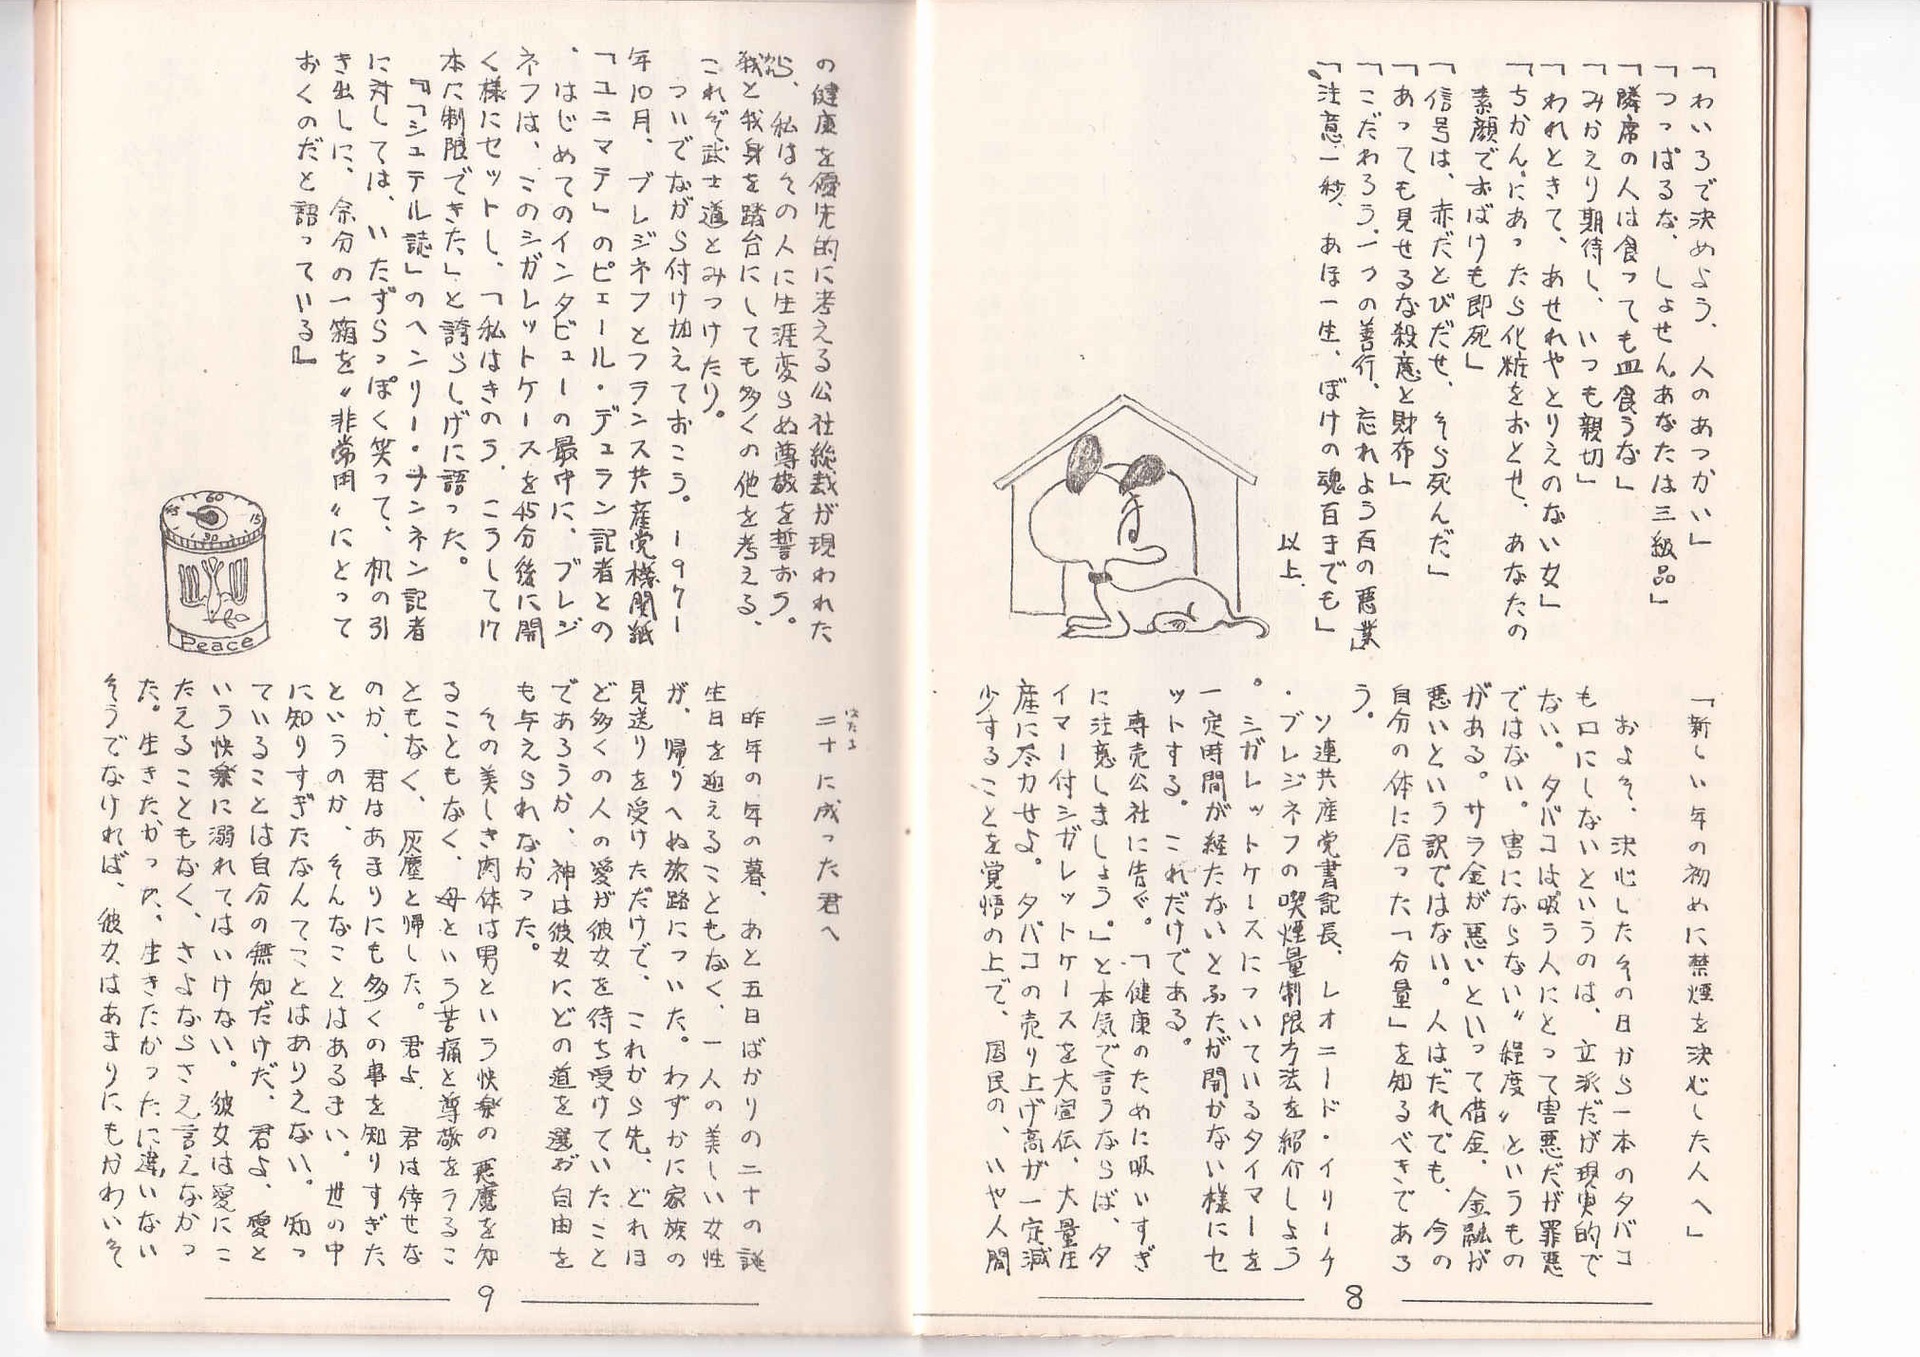 「わいろで決めよう、人のあつかい」
「つっぱるな、しょせんあなたは三級品」
「隣席の人は食っても皿食うな」
「みかえり期待し、いつも親切」
「われときて、あせれやとりえのない女」
「ちかん〟にあったら化粧をおとせ、あなたの
素顔でおばけも即死」
「信号は、赤だとびだせ、そら死んだ」
「あっても見せるな殺意と財布」
「こだわろう、一つの善行、忘れよう百の悪業」
「注意一秒、あほ一生、ぼけの魂百までも」
以上.
「新しい年の初めに禁煙を決心した人へ」
およそ、決心したその日から一本のタバコ
も口にしないというのは、立派だが現実的で
ない。タバコは吸う人にとって害悪だが罪悪
ではない。害にならない〝程度〟というもの
がある。サラ金が悪いといって借金、金融が
悪いという訳ではない。人はだれでも、今の
自分の体に合った「分量」を知るべきであろ
う。
ソ連共産党書記長、レオニード・イリーチ
・ブレジネフの喫煙量制限方法を紹介しよう
。シガレットケースについているタイマーを
一定時間が経たないとふたが開かない様にセ
ットする。これだけである。
専売公社に告ぐ。「健康のために吸いすぎ
に注意しましょう。」と本気で言うならば、タ
イマー付シガレットケースを大宣伝、大量生
産に尽力せよ。タバコの売り上げ高が一定減
少することを覚悟の上で、国民の、いや人間
8
の健康を優先的に考える公社総裁が現われた
ら、私はその人に生涯変らぬ尊敬を誓おう。
我と我身を踏台にしても多くの他を考える、
これぞ武士道とみつけたり。
ついでながら付け加えておこう。1971
年10月、ブレジネフとフランス共産党機関紙
「ユニマテ」のピエール・デュラン記者との
、はじめてのインタビューの最中に、ブレジ
ネフは、このシガレットケースを45分後に開
く様にセットし、「私はきのう、こうして17
本に制限できた」と誇らしげに語った。
『「シュテル誌」のヘンリー・ナンネン記者
に対しては、いたずらっぽく笑って、机の引
き出しに、余分の一箱を〝非常用〟にとって
おくのだと語っている』
60
15
30
45
Peace
はたち
二十に成った君へ
昨年の年の暮、あと五日ばかりの二十の誕
生日を迎えることもなく、一人の美しい女性
が、帰りへぬ旅路についた。わずかに家族の
見送りを受けただけで、これから先、どれほ
ど多くの人の愛が彼女を待ち受けていたこと
であろうか、神は彼女にどの道を選ぶ自由を
も与えられなかった。
その美しき肉体は男という快楽の悪魔を知
ることもなく、母という苦痛と尊敬をうるこ
ともなく、灰塵と帰した。君よ、君は倖せな
のか、君はあまりにも多くの事を知りすぎた
というのか、そんなことはあるまい。世の中
に知りすぎたなんてことはありえない。知っ
ていることは自分の無知だけだ、君よ、愛と
いう快楽に溺れてはいけない。彼女は愛にこ
たえることもなく、さよならさえ言えなかっ
た。生きたかった、生きたかったに違いない
そうでなければ、彼女はあまりにもかわいそ
9